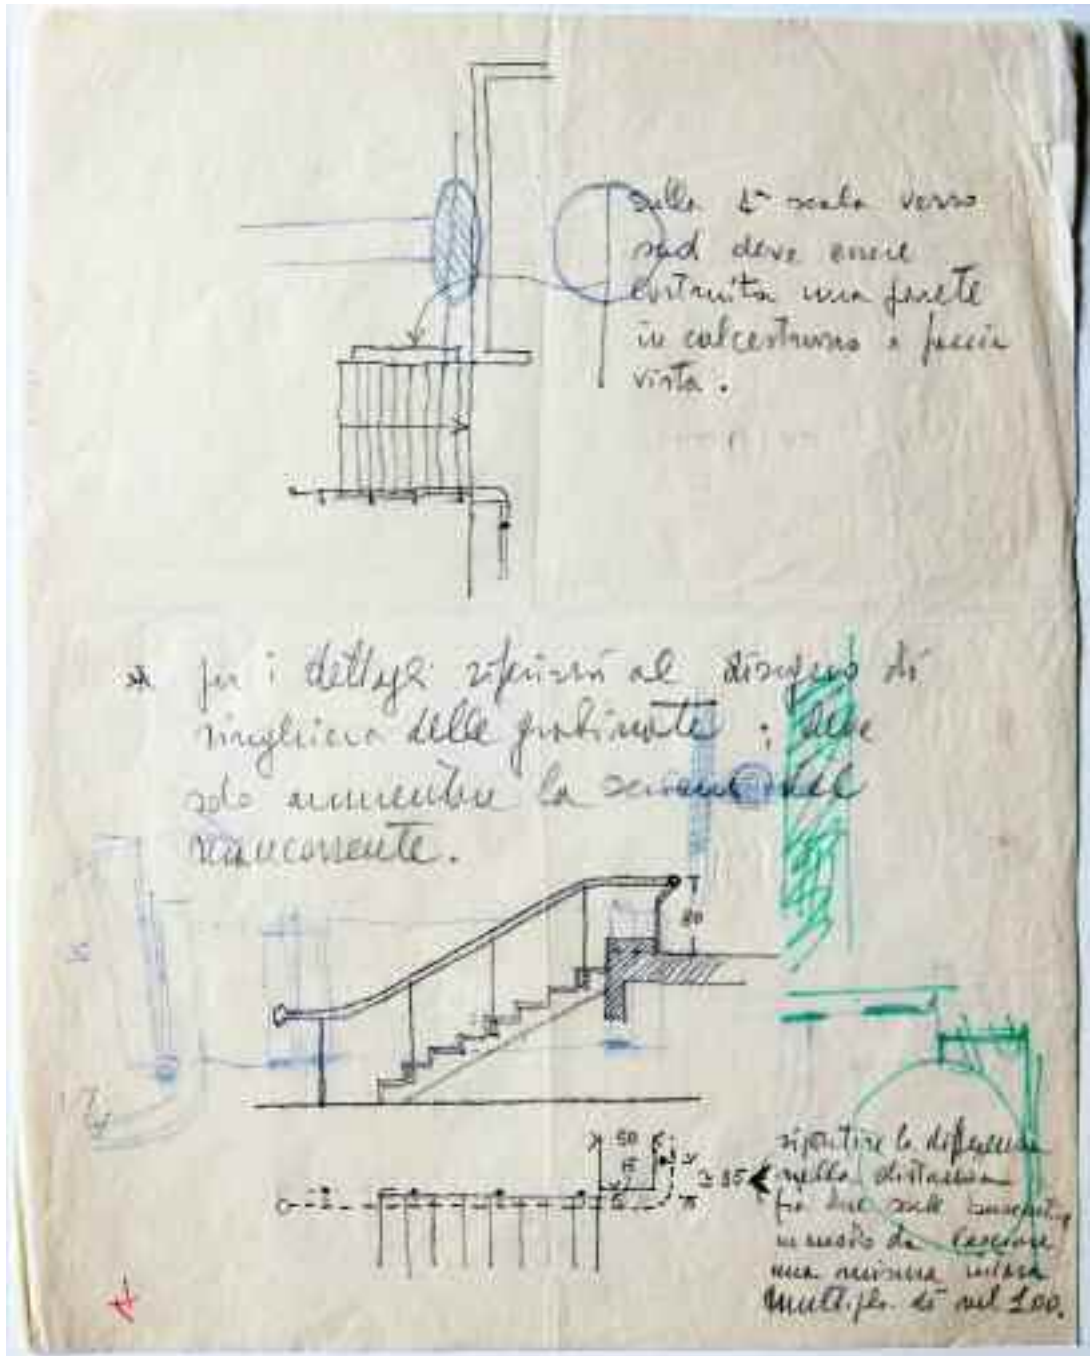 sulla 1ª scala verso
sud deve essere
costruita una parete
in calcestruzzo a faccia
vista.
per i dettagli riferirsi al disegno di
ringhiera delle gradinate ; deve
solo aumentare la sezione del
mancorrente.
80
50
15
≃ 85
ripartire la differenza
nella distanza
fra due
in modo da lasciare
una misura intera
multipla di 100.